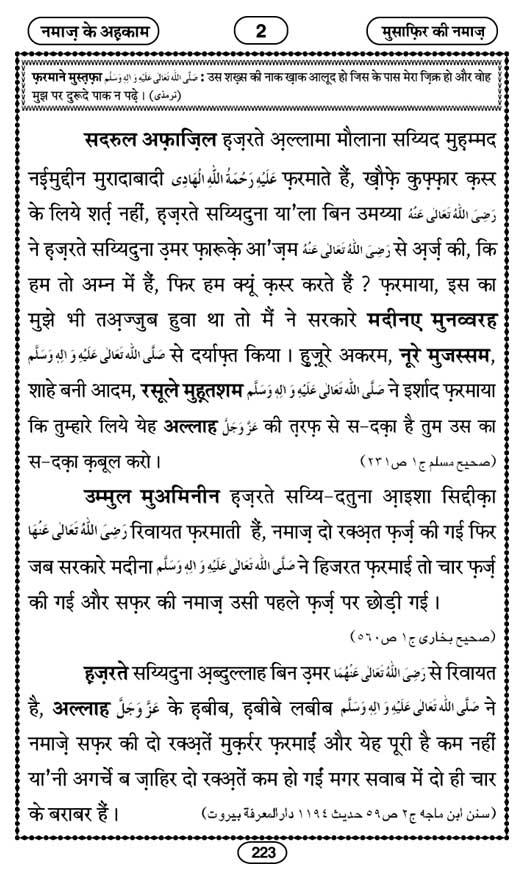 नमाज़ के अह़काम
2
मुसाफ़िर की नमाज़
फ़रमाने मुस्त़फ़ा صَلَّی اللہُ تَعَالٰی عَلَیْہِ وَاٰلِہٖ وَسَلَّم : उस शख़्स की नाक ख़ाक आलूद हो जिस के पास मेरा ज़िक्र हो और वोह
मुझ पर दुरूदे पाक न पढ़े । (ترمذی)
सदरुल अफ़ाज़िल ह़ज़रते अ़ल्लामा मौलाना सय्यिद मुह़म्मद
नई़मुद्दीन मुरादाबादी عَلَیْہِ رَحْمَۃُ اللہِ الْہَادِی फ़रमाते हैं, ख़ौफ़े कुफ़्फ़ार क़स्र
के लिये शर्त़ नहीं, ह़ज़रते सय्यिदुना या'ला बिन उमय्या رَضِیَ اللہُ تَعَالٰی عَنْہُ
ने ह़ज़रते सय्यिदुना उ़मर फ़ारूके़ आ'ज़म رَضِیَ اللہُ تَعَالٰی عَنْہُ से अ़र्ज़ की, कि
हम तो अम्न में हैं, फिर हम क्यूं क़स्र करते हैं ? फ़रमाया, इस का
मुझे भी तअ़ज्जुब हुवा था तो मैं ने सरकारे मदीनए मुनव्वरह
صَلَّی اللہُ تَعَالٰی عَلَیْہِ وَاٰلِہٖ وَسَلَّم से दर्याफ़्त किया । हु़ज़ूरे अकरम, नूरे मुजस्सम,
शाहे बनी आदम, रसूले मुह़तशम صَلَّی اللہُ تَعَالٰی عَلَیْہِ وَاٰلِہٖ وَسَلَّم ने इर्शाद फ़रमाया
कि तुम्हारे लिये येह अल्लाह عَزَّوَجَلَّ की त़रफ़ से स-दक़ा है तुम उस का
स-दक़ा क़बूल करो । (صحیح مسلم ج۱ ص۲۳۱)
उम्मुल मुअमिनीन ह़ज़रते सय्यि-दतुना आ़इशा सिद्दीक़ा
رَضِیَ اللہُ تَعَالٰی عَنْہَا रिवायत फ़रमाती हैं, नमाज़ दो रक्अ़त फ़र्ज़ की गई फिर
जब सरकारे मदीना صَلَّی اللہُ تَعَالٰی عَلَیْہِ وَاٰلِہٖ وَسَلَّم ने हिजरत फ़रमाई तो चार फ़र्ज़
की गई और सफ़र की नमाज़ उसी पहले फ़र्ज़ पर छोड़ी गई ।
(صحیح بخاری ج۱ ص۵۶۰)
ह़ज़रते सय्यिदुना अ़ब्दुल्लाह बिन उ़मर رَضِیَ اللہُ تَعَالٰی عَنْہُمَا से रिवायत
है, अल्लाह عَزَّوَجَلَّ के ह़बीब, ह़बीबे लबीब صَلَّی اللہُ تَعَالٰی عَلَیْہِ وَاٰلِہٖ وَسَلَّم ने
नमाजे़ सफ़र की दो रक्अ़तें मुक़र्रर फ़रमाईं और येह पूरी है कम नहीं
या'नी अगर्चे ब ज़ाहिर दो रक्अ़तें कम हो गईं मगर सवाब में दो ही चार
के बराबर हैं । (سنن ابن ماجه ج۲ ص۵۹ حدیث ۱۱۹٤ دارالمعرفة بیروت)
223